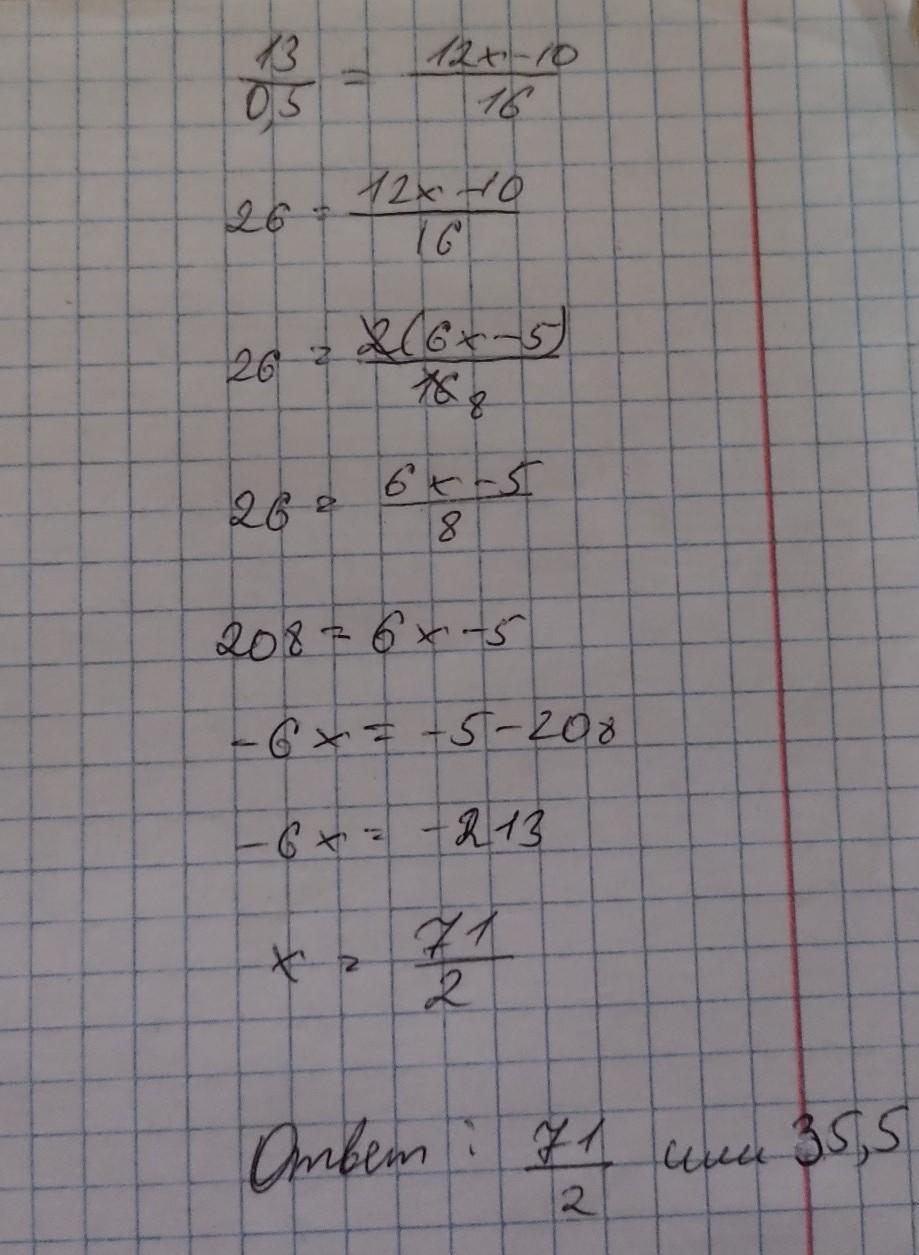 13/0,5 = 12x-10/16
26 = 12x-10/16
26 = 2(6x-5)/16 8
26 = 6x-5/8
208 = 6x-5
-6x = -5-208
-6x = -213
x = 71/2
Ответ: 71/2 или 35,5